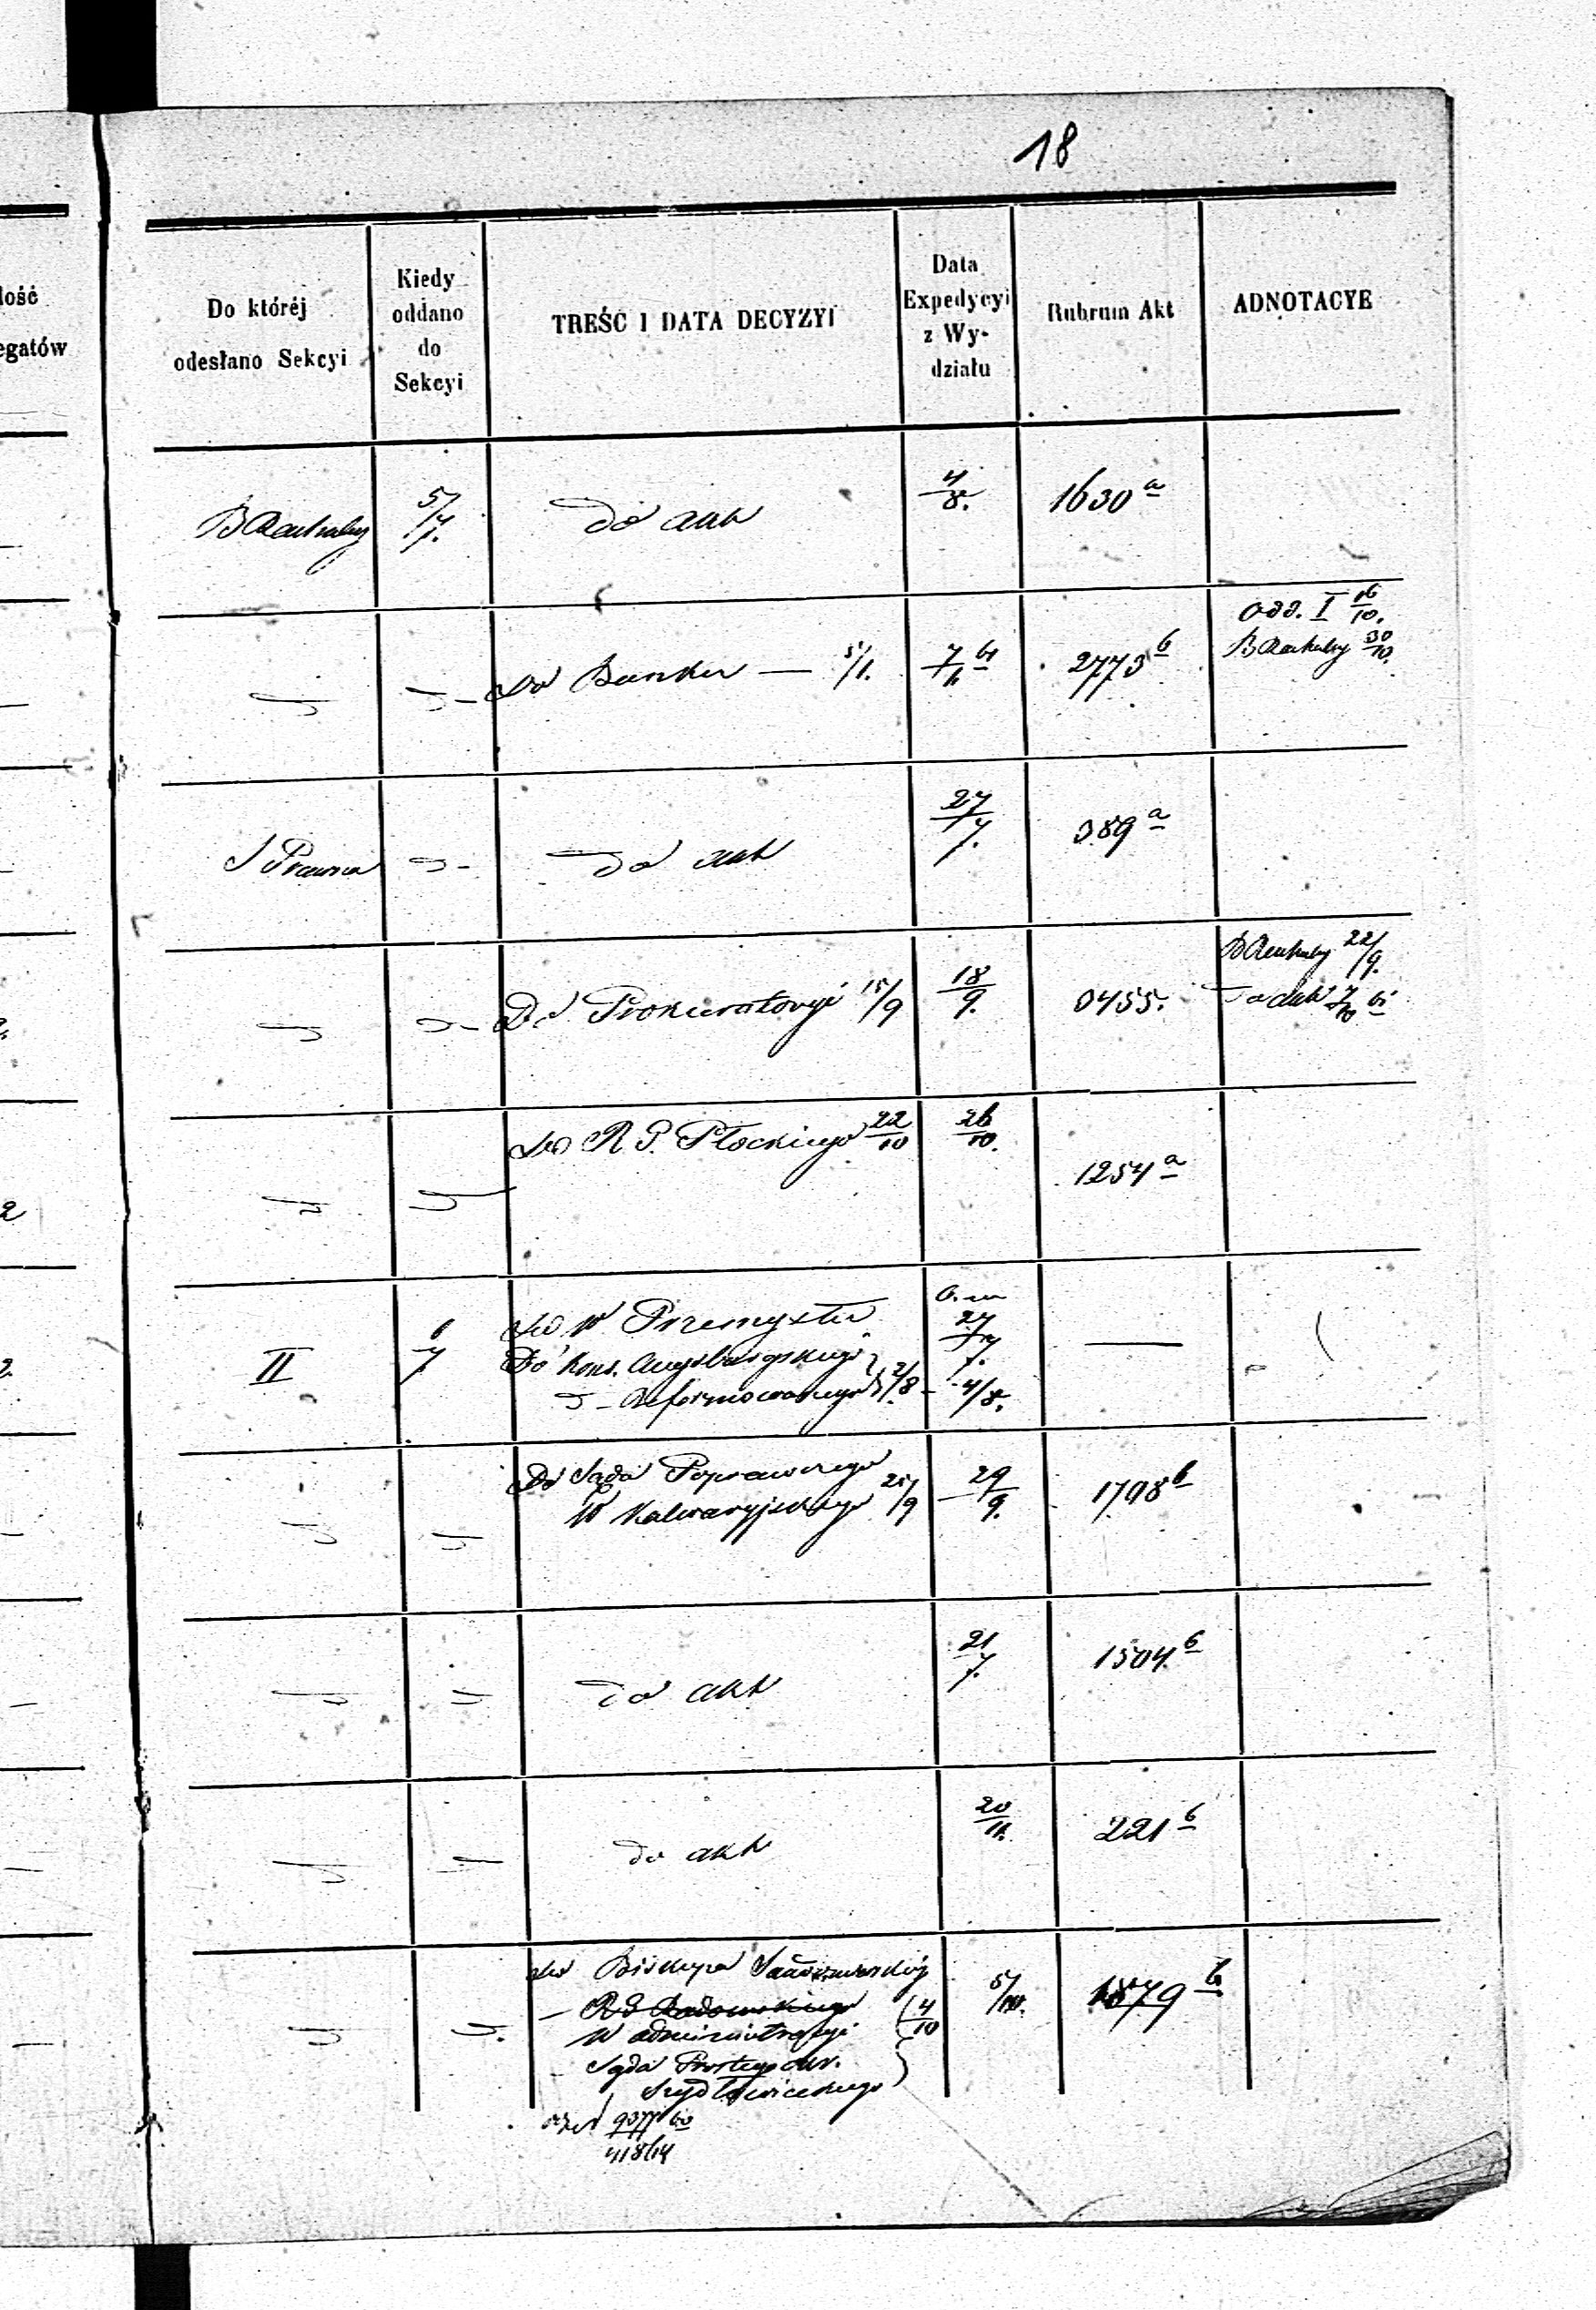 18
lość
egatów
Do któréj
odesłano Sekcyi
Kiedy
oddano
do
Sekcyi
TREŚĆ I DATA DECYZYI
Data
Expedycyi
z Wy-
działu
Rubrum Akt
ADNOTACYE
B Rachuby
5/7.
do akt
4/8.
1630 a
do Banku — 5/1.
2773 b
Odd. I 16/10.
B Rachuby 30/10.
S Prawna
do akt
27/7.
389 a
Do Prokuratoryi 15/9
18/9.
0455.
B Rachuby 22/9.
Do R. P. Płockiego 22/10
26/10.
1254 a
II
6/7
Do W Przemysłu
27/7.
Do Kons. Augsburgskiego
Reformowanego 2/8
4/8.
Do Sądu Poprawczego
W Kalwaryjskiego 25/9
29/9.
1798 b
do akt
21/7.
1504 b
do akt
20/11.
221 b
Do Biskupa Sandomierskiej
R G Radomskiego
W administracyi
4/10
5/10.
1879 b
Sąda Prostego Okr.
Szydłowieckiego